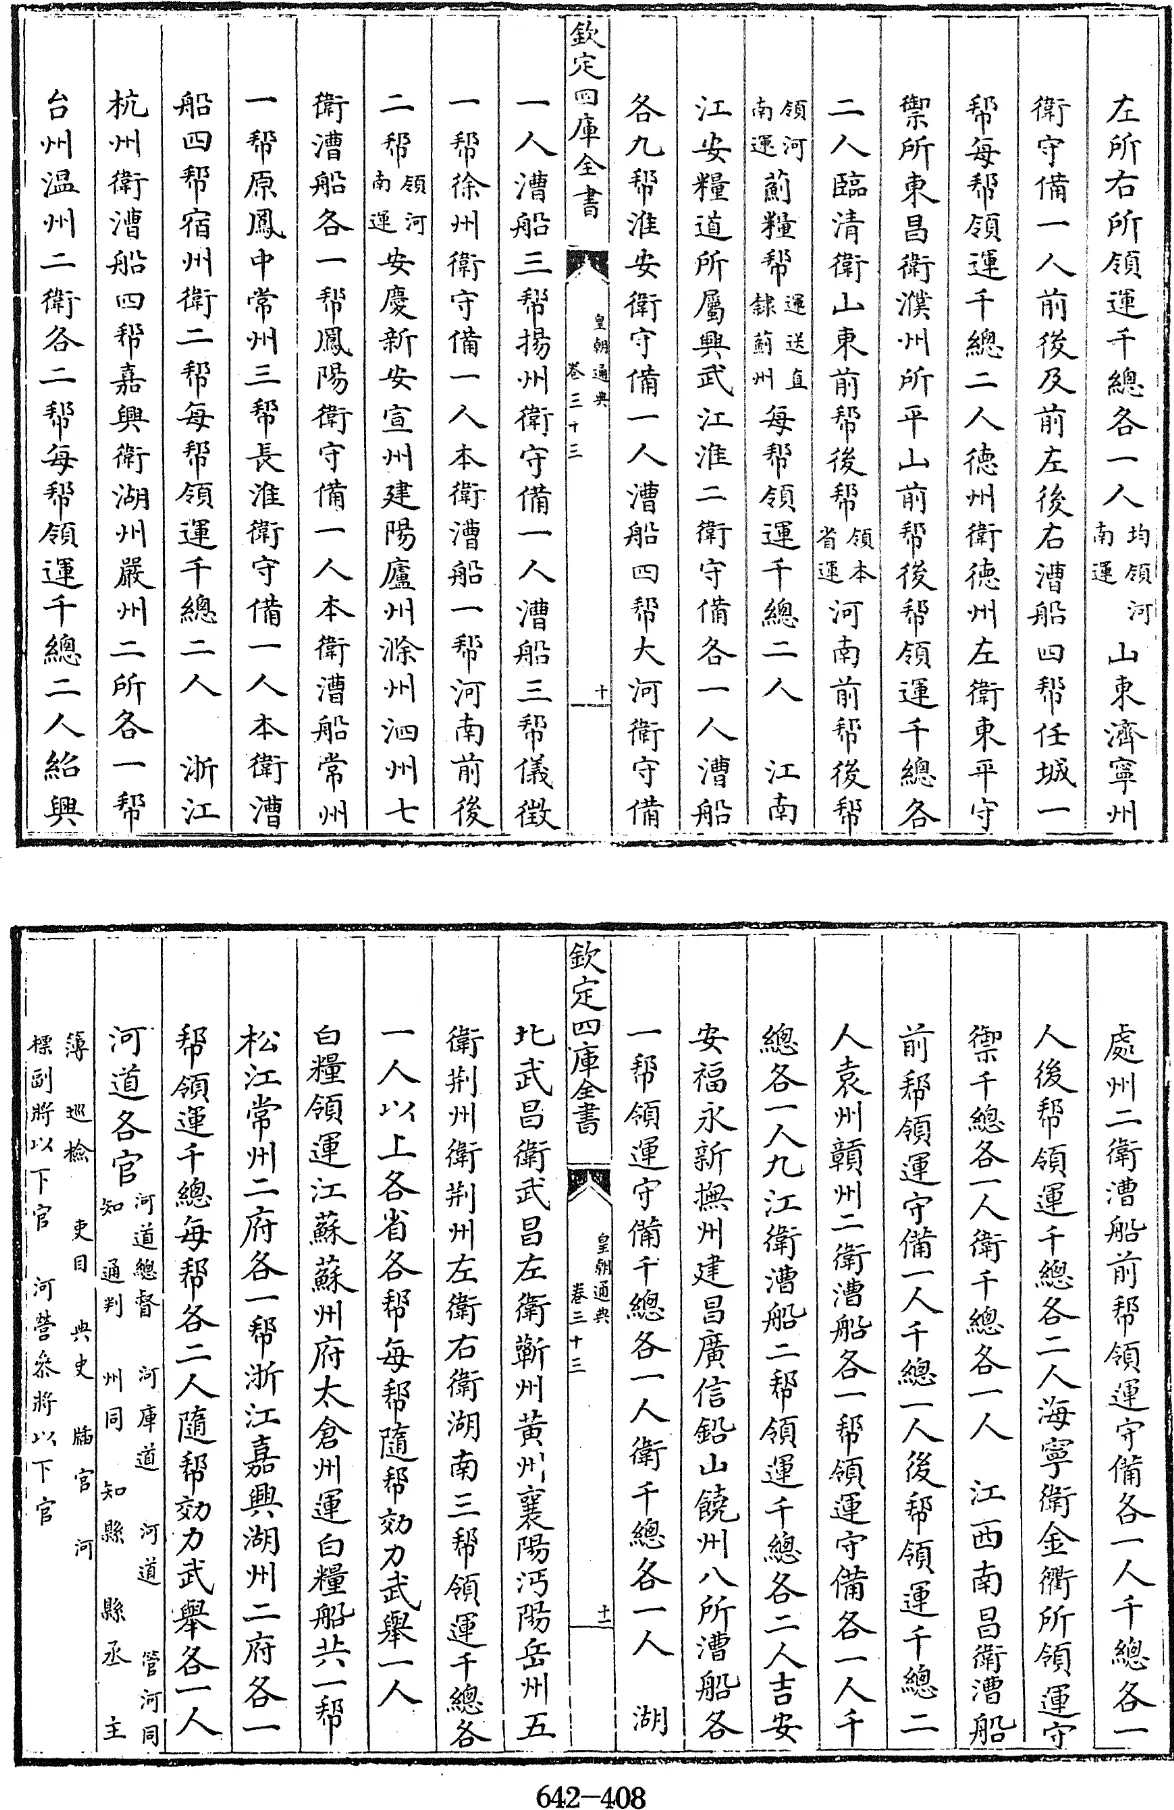 左所右所領運千總各一人均領河南運山東濟寧州
衛守備一人前後及前左後右漕船四帮任城一
帮每帮領運千總二人德州衛德州左衛東平守
禦所東昌衛濮州所平山前帮後帮領運千總各
二人臨清衛山東前帮後帮領本省運河南前帮後帮
領河南運薊糧帮運送直隸薊州每帮領運千總二人 江南
江安糧道所屬興武江淮二衛守備各一人漕船
各九帮淮安衛守備一人漕船四帮大河衛守備
欽定四庫全書 皇朝通典 卷三十三 十
一人漕船三帮揚州衛守備一人漕船三帮儀徵
一帮徐州衛守備一人本衛漕船一帮河南前後
二帮領河南運安慶新安宣州建陽廬州滁州泗州七
衛漕船各一帮鳳陽衛守備一人本衛漕船常州
一帮原鳳中常州三帮長淮衛守備一人本衛漕
船四帮宿州衛二帮每帮領運千總二人 浙江
杭州衛漕船四帮嘉興衛湖州嚴州二所各一帮
台州温州二衛各二帮每帮領運千總二人紹興
處州二衛漕船前帮領運守備各一人千總各一
人後帮領運千總各二人海寧衛金衢所領運守
禦千總各一人衛千總各一人 江西南昌衛漕船
前帮領運守備一人千總一人後帮領運千總二
人袁州贛州二衛漕船各一帮領運守備各一人千
總各一人九江衛漕船二帮領運千總各二人吉安
安福永新撫州建昌廣信鉛山饒州八所漕船各
一帮領運守備千總各一人衛千總各一人 湖
欽定四庫全書 皇朝通典 卷三十三 十一
北武昌衛武昌左衛蘄州黃州襄陽沔陽岳州五
衛荆州衛荆州左衛右衛湖南三帮領運千總各
一人以上各省各帮每帮隨帮効力武舉一人
白糧領運江蘇蘇州府太倉州運白糧船共一帮
松江常州二府各一帮浙江嘉興湖州二府各一
帮領運千總每帮各二人隨帮効力武舉各一人
河道各官河道總督 河庫道 河道 管河同知 通判 州同 知縣 縣丞 主
簿 巡檢 吏目 典史 牐官 河
標副將以下官 河營叅將以下官
642-408